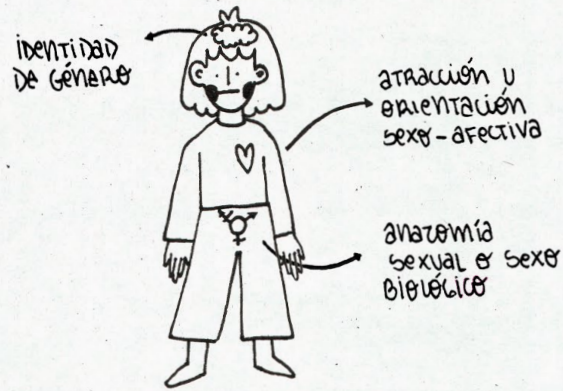 iDENTiDAD
DE GÉNERO
ATRACCIÓN U
ORIENTACIÓN
SEXO-AFECTIVA
ANATOMÍA
SEXUAL O SEXO
BIOLÓGICO